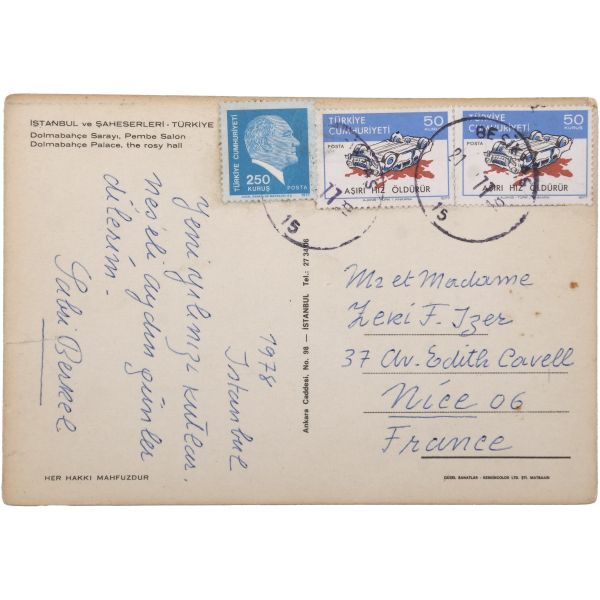 İSTANBUL ve ŞAHESERLERİ - TÜRKİYE
Dolmabahçe Sarayı, Pembe Salon
Dolmabahçe Palace, the rosy hall
TÜRKİYE CUMHURİYETİ
250
KURUŞ
POSTA
TÜRKİYE
CUMHURİYETİ
50
KURUŞ
POSTA
AŞIRI HIZ ÖLDÜRÜR
TÜRKİYE
CUMHURİYETİ
50
KURUŞ
POSTA
AŞIRI HIZ ÖLDÜRÜR
15
17
15
Yeni yılınızı kutlar,
neşeli aydın günler
dilerim.
Sabri Berkel
1978
Istanbul
Ankara Caddesi, No. 98 — İSTANBUL Tel.: 27 34 06
Mr et Madame
Zeki F. Izer
37 Av. Edith Cavell
Nice 06
France
HER HAKKI MAHFUZDUR
GÜZEL SANATLAR - RENKÇOLOR LTD. ŞTİ. MATBAASI